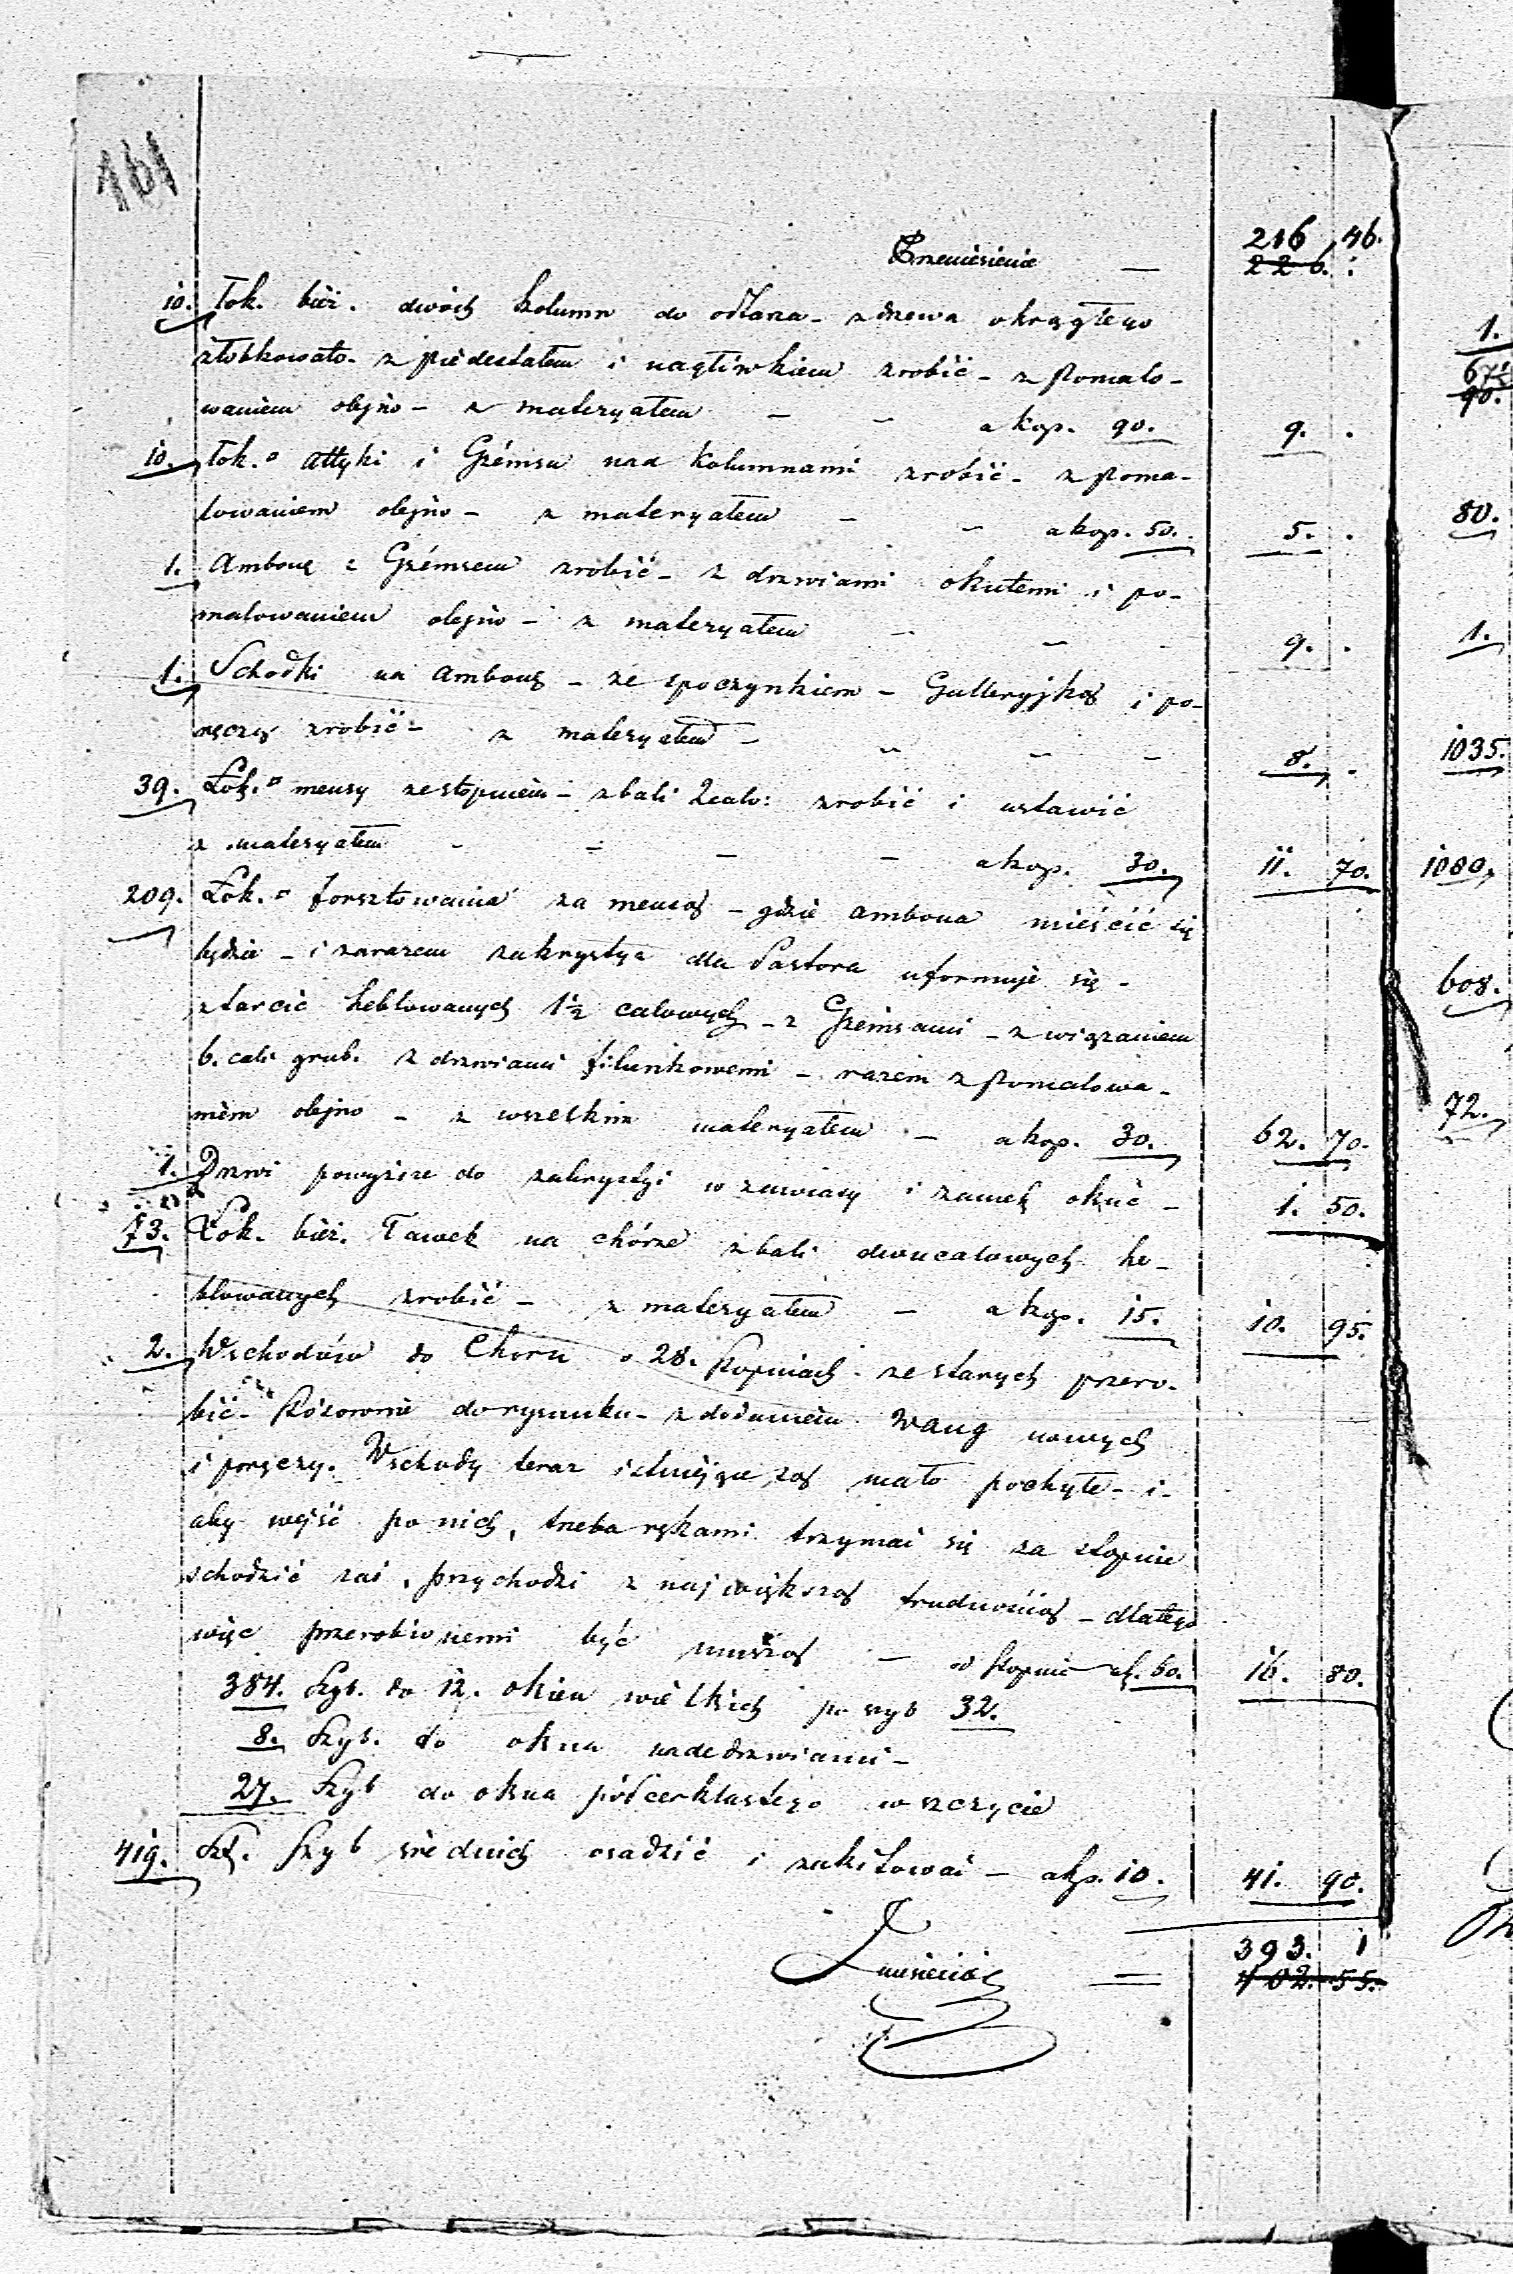 161
Przeniesienie — 216 46.
226. :
10. Łok. bież. dwóch kolumn do ołtarza - z drzewa okrągłego
żłobkowato - z piedestałem i nagłówkiem zrobić - z pomalo-
waniem olejno - z materyałem - - a kop. 90. 9. .
10. Łok. □ attyki i Gzémsu nad kolumnami zrobić - z poma-
lowaniem olejno - z materyałem - - a kop. 50. 5. .
1. Ambonę z Gzémsem zrobić - z drzwiami okutemi i po-
malowaniem olejno - z materyałem - - - 9. .
1. Schodki na ambonę - ze spoczynkiem - Galleryjką i po-
ręczą zrobić - z materyałem - - - - 8. .
39. Łok. □ mensy ze stopniem - z bali 2 calo: zrobić i ustawić
z materyałem - - - - a kop. 30. 11. 70.
209. Łok. □ forsztowania za mensą - gdzie ambona mieścić się
będzie - i zarazem zakrystya dla Pastora uformuje się -
z tarcic heblowanych 1½ calowych - z Gzémsami - z wiązaniem
6. cali grub. z drzwiami filunkowemi - razem z pomalowa-
niem olejno - z wszelkim materyałem - a kop. 30. 62. 70.
1. Drzwi powyższe do zakrystyi w zawiasy i zamek okuć - 1. 50.
73. Łok. bież. Ławek na chórze z bali dwucalowych he-
blowanych zrobić - z materyałem - a kop. 15. 10. 95.
2. Wschodów do Choru o 28. stopniach - ze starych przero-
bić - stósownie do rysunku - z dodaniem wang nowych
i poręczy. Wschody teraz istniejące są mało pochyłe - i -
aby wejść po nich, trzeba rękami trzymać się za stopnie
schodzić zaś, przychodzi z największą trudnością - dlatego
więc przerobionemi być muszą - od stopnia af. 60. 16. 80.
384. Szyb. do 12. okien wielkich po szyb 32.
8. Szyb. do okna nadedrzwiami -
27. Szyb do okna półcerklastego w szczycie
419. Szt. Szyb średnich osadzić i zakitować - a kp. 10. 41. 90.
Latus 393. 1
402. 55.
1.
67½
90.
80.
1.
1035.
1080.
608.
72.